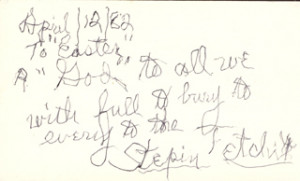 April 12/82
To "Easter"
A "God to all we
with full & bury to
every to the
Stepin Fetchit